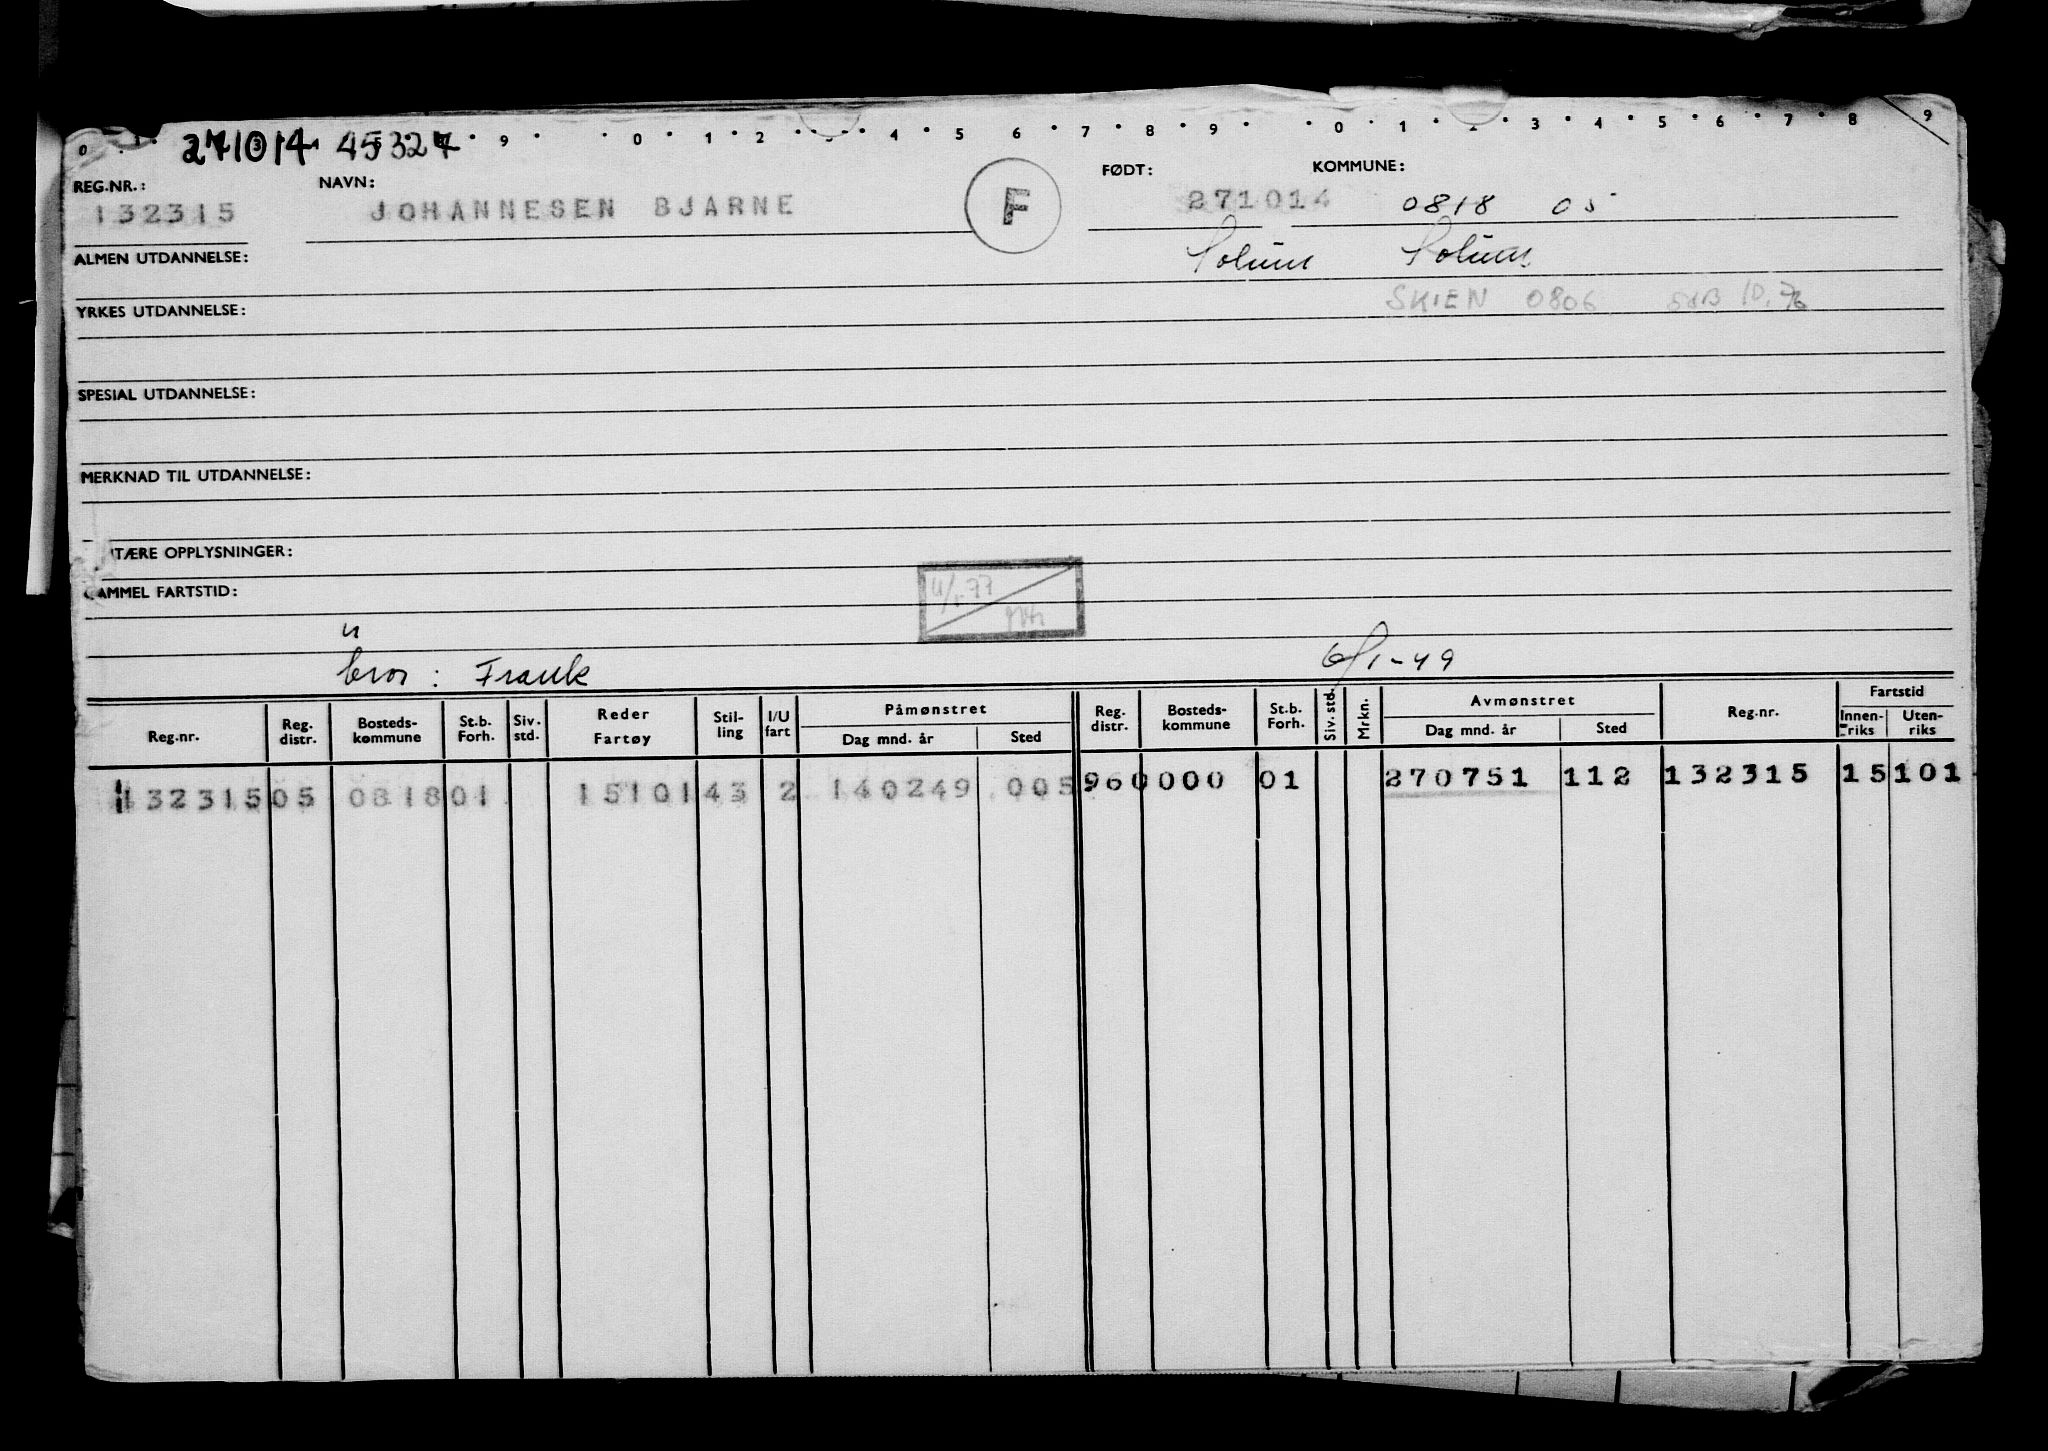 271014 45327
0 1 3 9 0 1 2 3 4 5 6 7 8 9 0 1 2 3 4 5 6 7 8 9
REG.NR.: NAVN: FØDT: KOMMUNE:
132315 JOHANNESEN BJARNE F 271014 0818 05
ALMEN UTDANNELSE: Solum Solum
YRKES UTDANNELSE: SKIEN 0806
SPESIAL UTDANNELSE:
MERKNAD TIL UTDANNELSE:
TÆRE OPPLYSNINGER:
GAMMEL FARTSTID:
bror: Frank 6/1-49
Reg.nr. Reg. distr. Bosteds-kommune St.b. Forh. Siv. std. Reder Fartøy Stil-ling I/U fart Påmønstret Dag mnd. år Sted Reg. distr. Bosteds-kommune St.b. Forh. Siv. std. Mrkn. Avmønstret Dag mnd. år Sted Reg.nr. Fartstid Innen-riks Uten-riks
132315 05 0818 01 15101 43 2 140249 005 96 0000 01 270751 112 132315 15 101